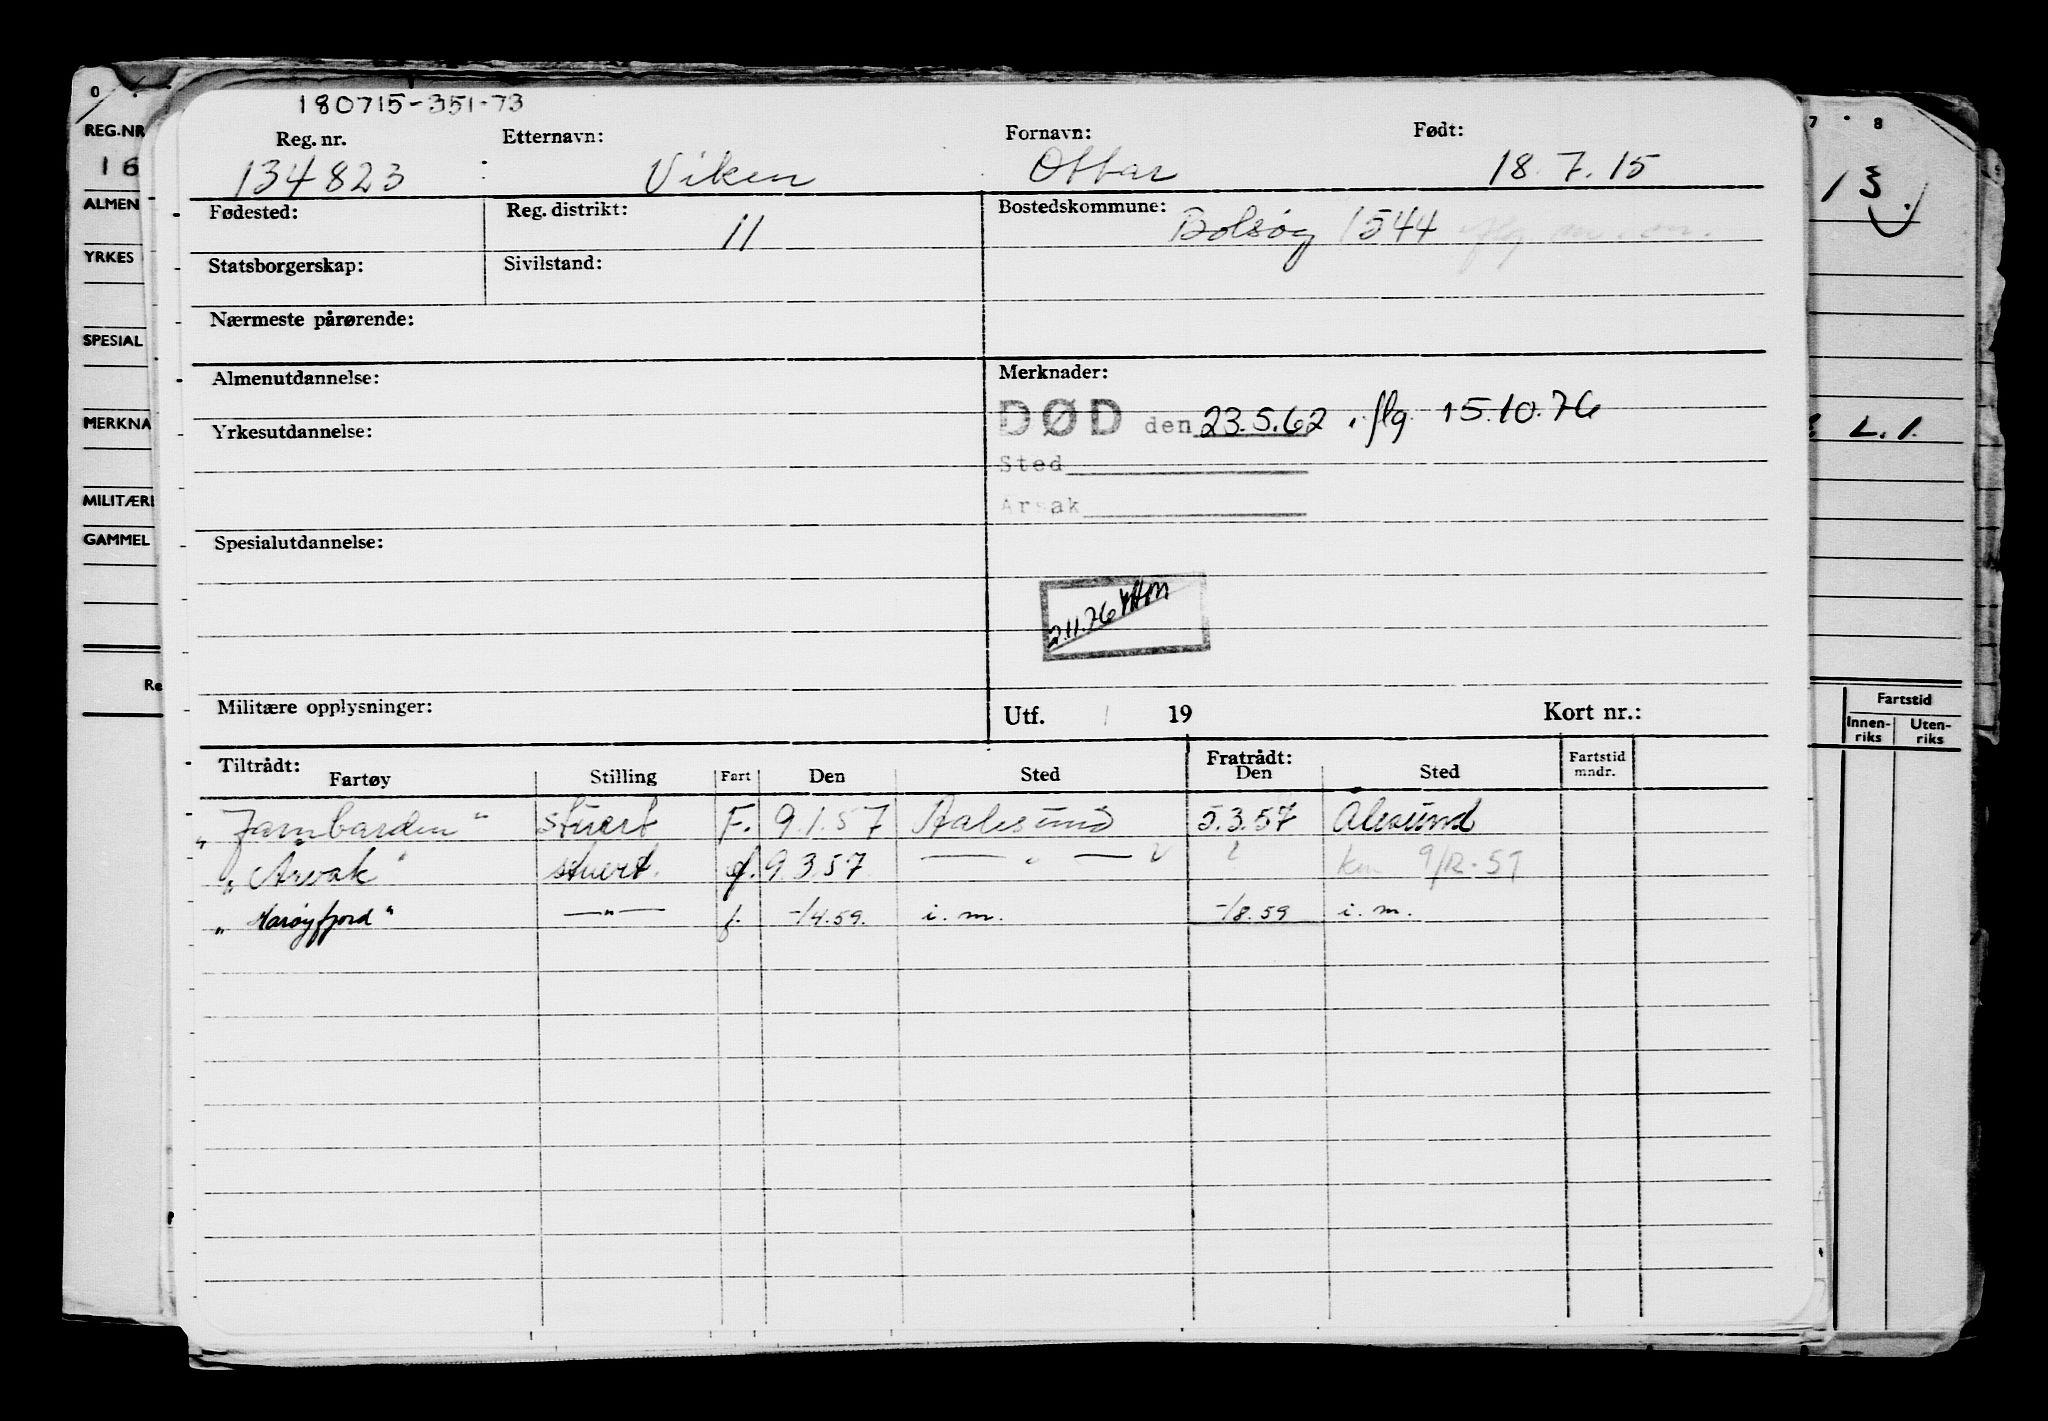 O .
REG.NR
180715-351-73
Reg. nr. Etternavn: Fornavn: Født: 7 8
16
134823 Viken Ottar 18.7.15
13.
ALMEN
Fødested: Reg. distrikt: 11 Bostedskommune: Bolsøy 1544 flg.
YRKES
Statsborgerskap: Sivilstand:
Nærmeste pårørende:
SPESIAL
Almenutdannelse: Merknader:
MERKNA
DØD den 23.5.62, flg. 15.10.76
L. 1.
Yrkesutdannelse:
Sted
MILITÆRE
Arsak
GAMMEL
Spesialutdannelse:
2.11.76
Re
Militære opplysninger: Utf. 1 19 Kort nr.:
Fartstid
Innen-riks Uten-riks
Tiltrådt: Fratrådt: Fartstid
Fartøy Stilling Fart Den Sted Den Sted mndr.
"Jambarden" stuert F. 9.1.57 Aalesund 5.3.57 Alesund
"Arvak" stuert. f. 9.3.57 — " — 9/12-57
"Harøyfjord" —"— f. -/4.59. i. m. -/8.59 i. m.